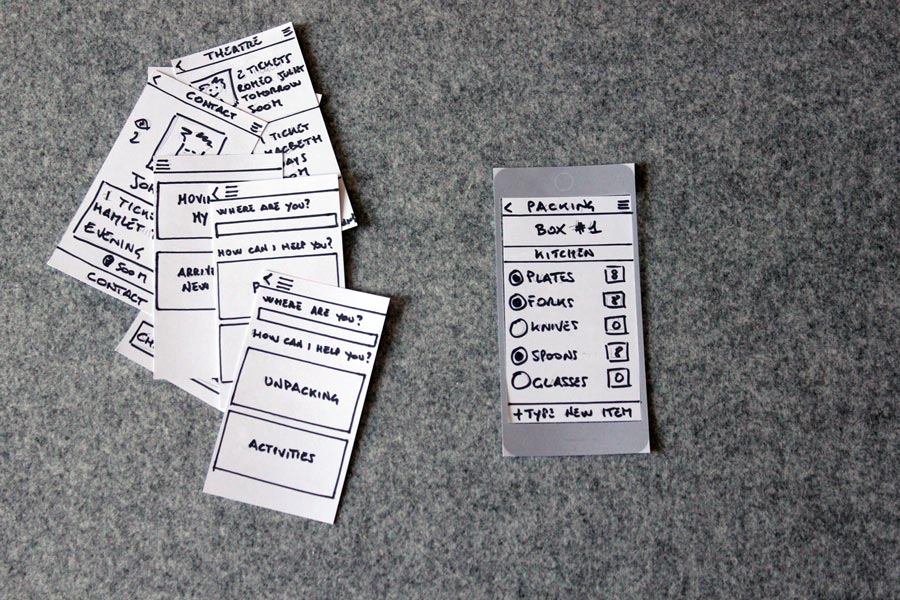 THEATRE
2 TICKETS
ROMEO JULIET
TOMORROW
500M
TICKET
MACBETH
DAYS
500M
CONTACT
2
JOH
1 TICKE
HAMLET
EVENING
@ 500M
CONTACT
CH
MOVIN
MY
ARRIV
NEW
WHERE ARE YOU?
HOW CAN I HELP YOU?
P
WHERE ARE YOU?
HOW CAN I HELP YOU?
UNPACKING
ACTIVITIES
< PACKING
BOX #1
KITCHEN
PLATES 8
FORKS 8
KNIVES 0
SPOONS 8
GLASSES 0
+TYPE NEW ITEM